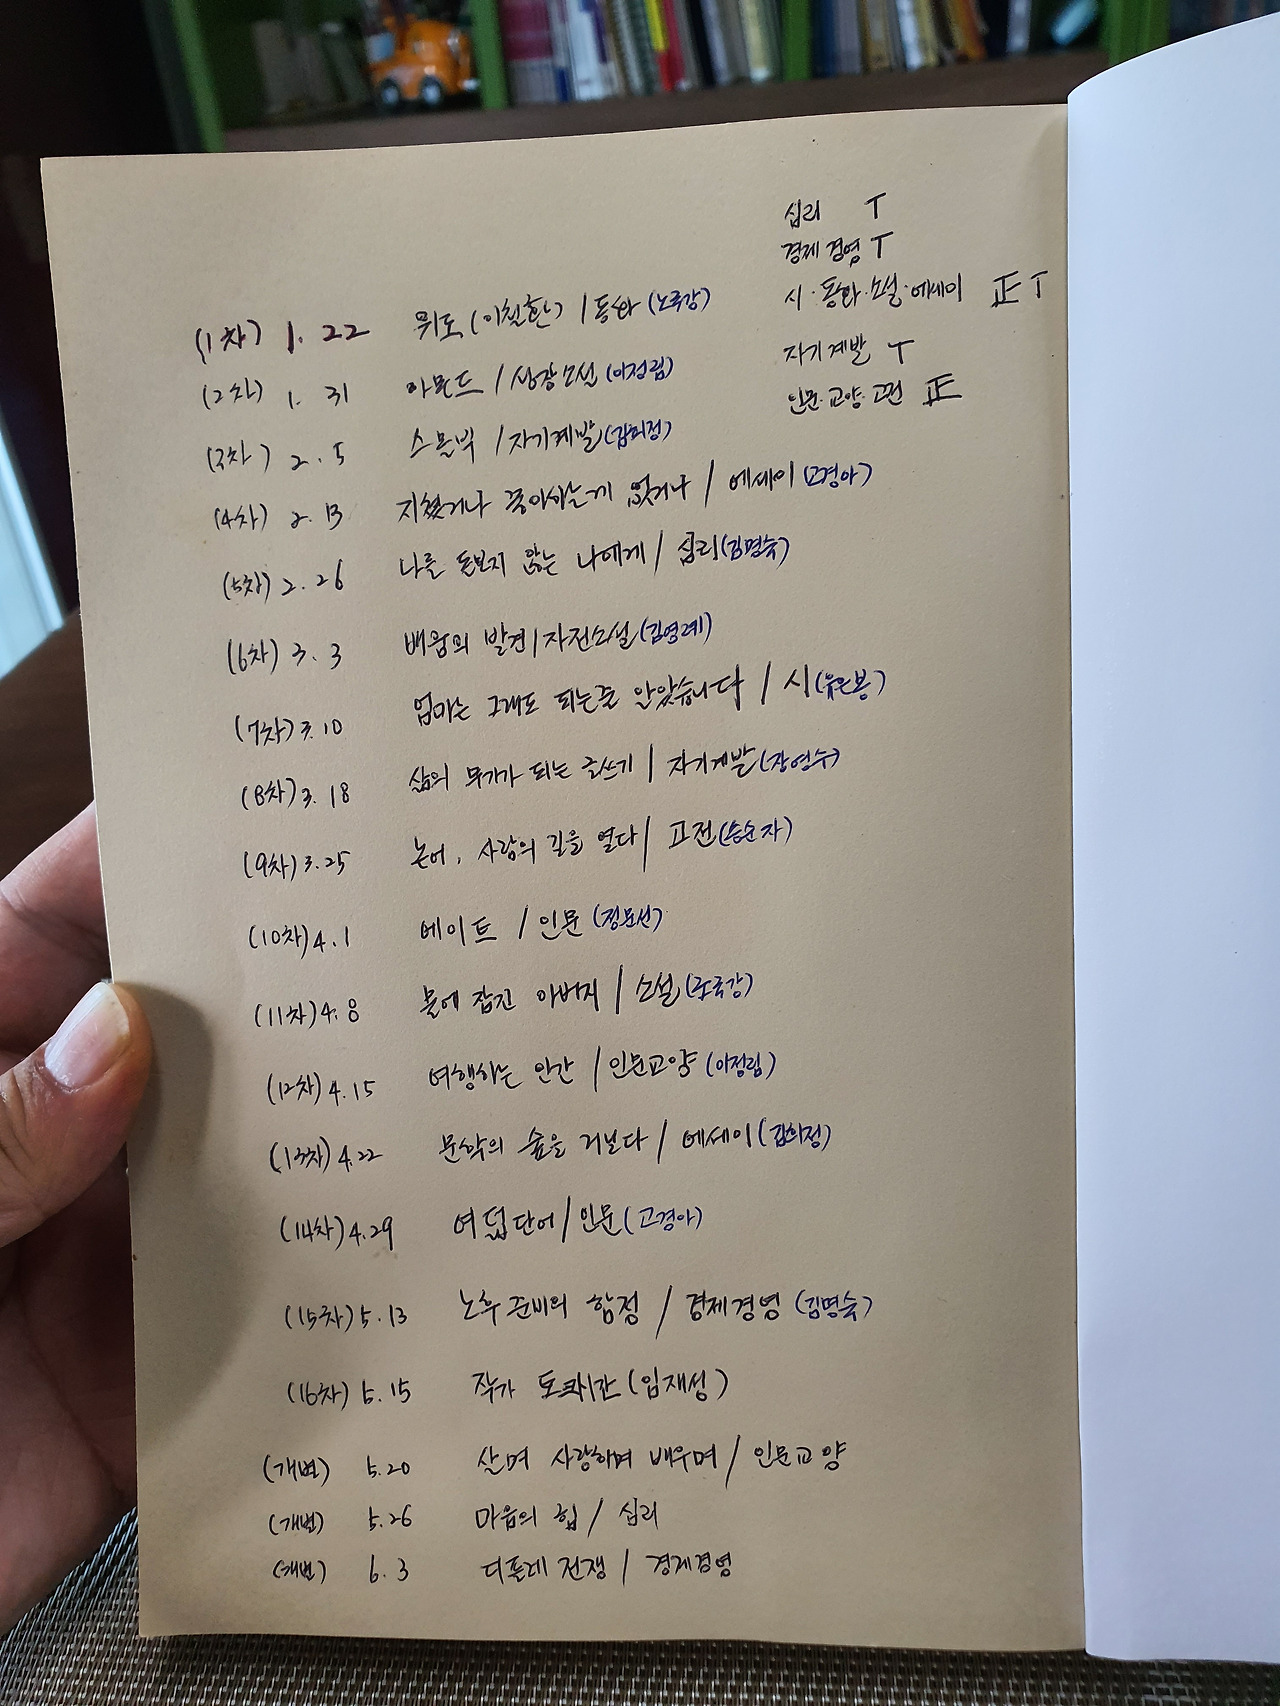 심리 T
경제 경영 T
시·동화·소설·에세이 正 T
자기계발 T
인문·교양·고전 正
(1차) 1. 22 위로 (이철환) / 동화 (노국강)
(2차) 1. 31 아몬드 / 성장소설 (이정림)
(3차) 2. 5 스몰빅 / 자기계발 (김희정)
(4차) 2. 13 지쳤거나 좋아하는게 없거나 / 에세이 (고경아)
(5차) 2. 26 나를 돌보지 않는 나에게 / 심리 (김명숙)
(6차) 3. 3 배움의 발견 / 자전소설 (김영례)
(7차) 3. 10 엄마는 그래도 되는줄 알았습니다 / 시
(8차) 3. 18 삶의 무기가 되는 글쓰기 / 자기계발 (장영수)
(9차) 3. 25 논어, 사람의 길을 열다 / 고전 (송순자)
(10차) 4. 1 에이트 / 인문 (정문선)
(11차) 4. 8 물에 잠긴 아버지 / 소설
(12차) 4. 15 여행하는 인간 / 인문교양 (이정림)
(13차) 4. 22 문학의 숲을 거닐다 / 에세이 (김희정)
(14차) 4. 29 여덟단어 / 인문 (고경아)
(15차) 5. 13 노후준비의 함정 / 경제경영 (김명숙)
(16차) 5. 15 작가 (임재성)
(개별) 5. 20 살며 사랑하며 배우며 / 인문교양
(개별) 5. 26 마음의 힘 / 심리
(개별) 6. 3 디플레 전쟁 / 경제경영